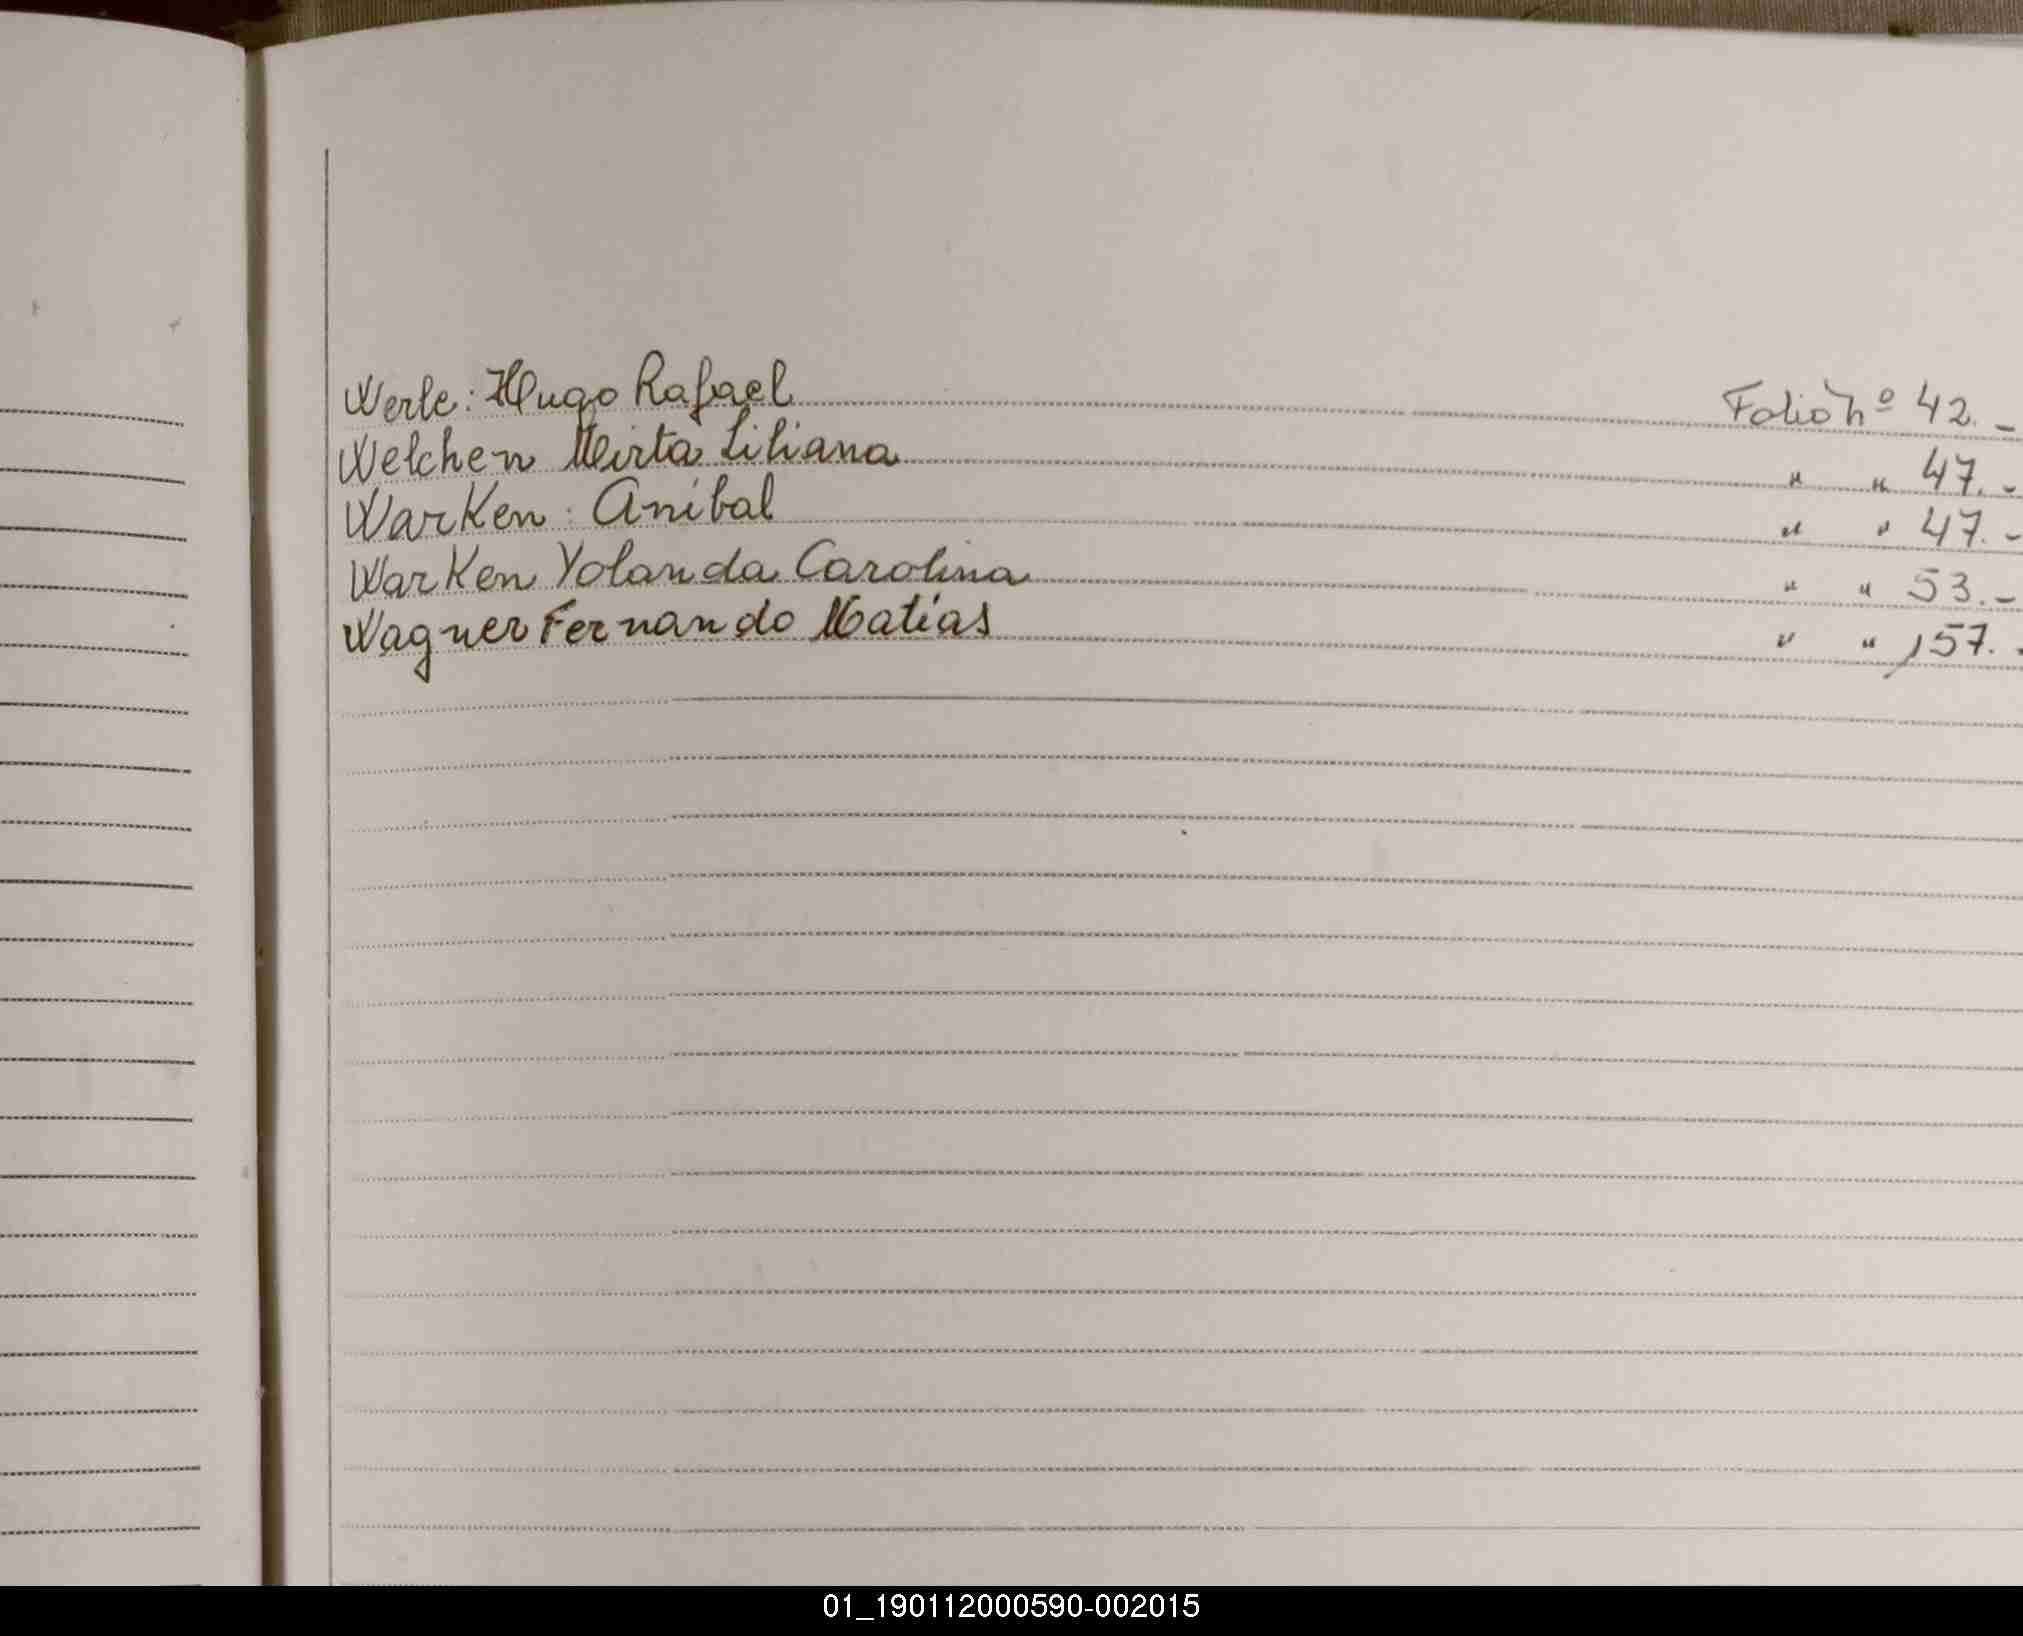 Werle: Hugo Rafael Folio nº 42.-
Welchen Mirta Liliana " " 47.-
WarKen. Aníbal " " 47.-
WarKen Yolanda Carolina " " 53.-
Wagner Fernando Matías " " 157.-
01_190112000590-002015